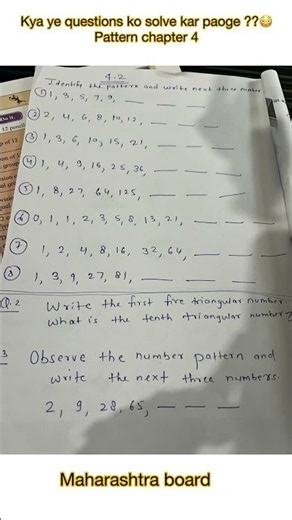 Kya ye questions ko solve kar paoge ??😳
Pattern chapter 4
4.2
Identify the pattern and write next three number
① 1, 3, 5, 7, 9, — — —
② 2, 4, 6, 8, 10, 12, — — —
③ 1, 3, 6, 10, 15, 21, — — —
④ 1, 4, 9, 16, 25, 36, — — —
⑤ 1, 8, 27, 64, 125, — — —
⑥ 0, 1, 1, 2, 3, 5, 8, 13, 21, — — —
⑦ 1, 2, 4, 8, 16, 32, 64, — — —
⑧ 1, 3, 9, 27, 81, — — —
Q.2 Write the first five triangular number.
What is the tenth triangular number?
3 Observe the number pattern and
write the next three numbers.
2, 9, 28, 65, — — —
Maharashtra board